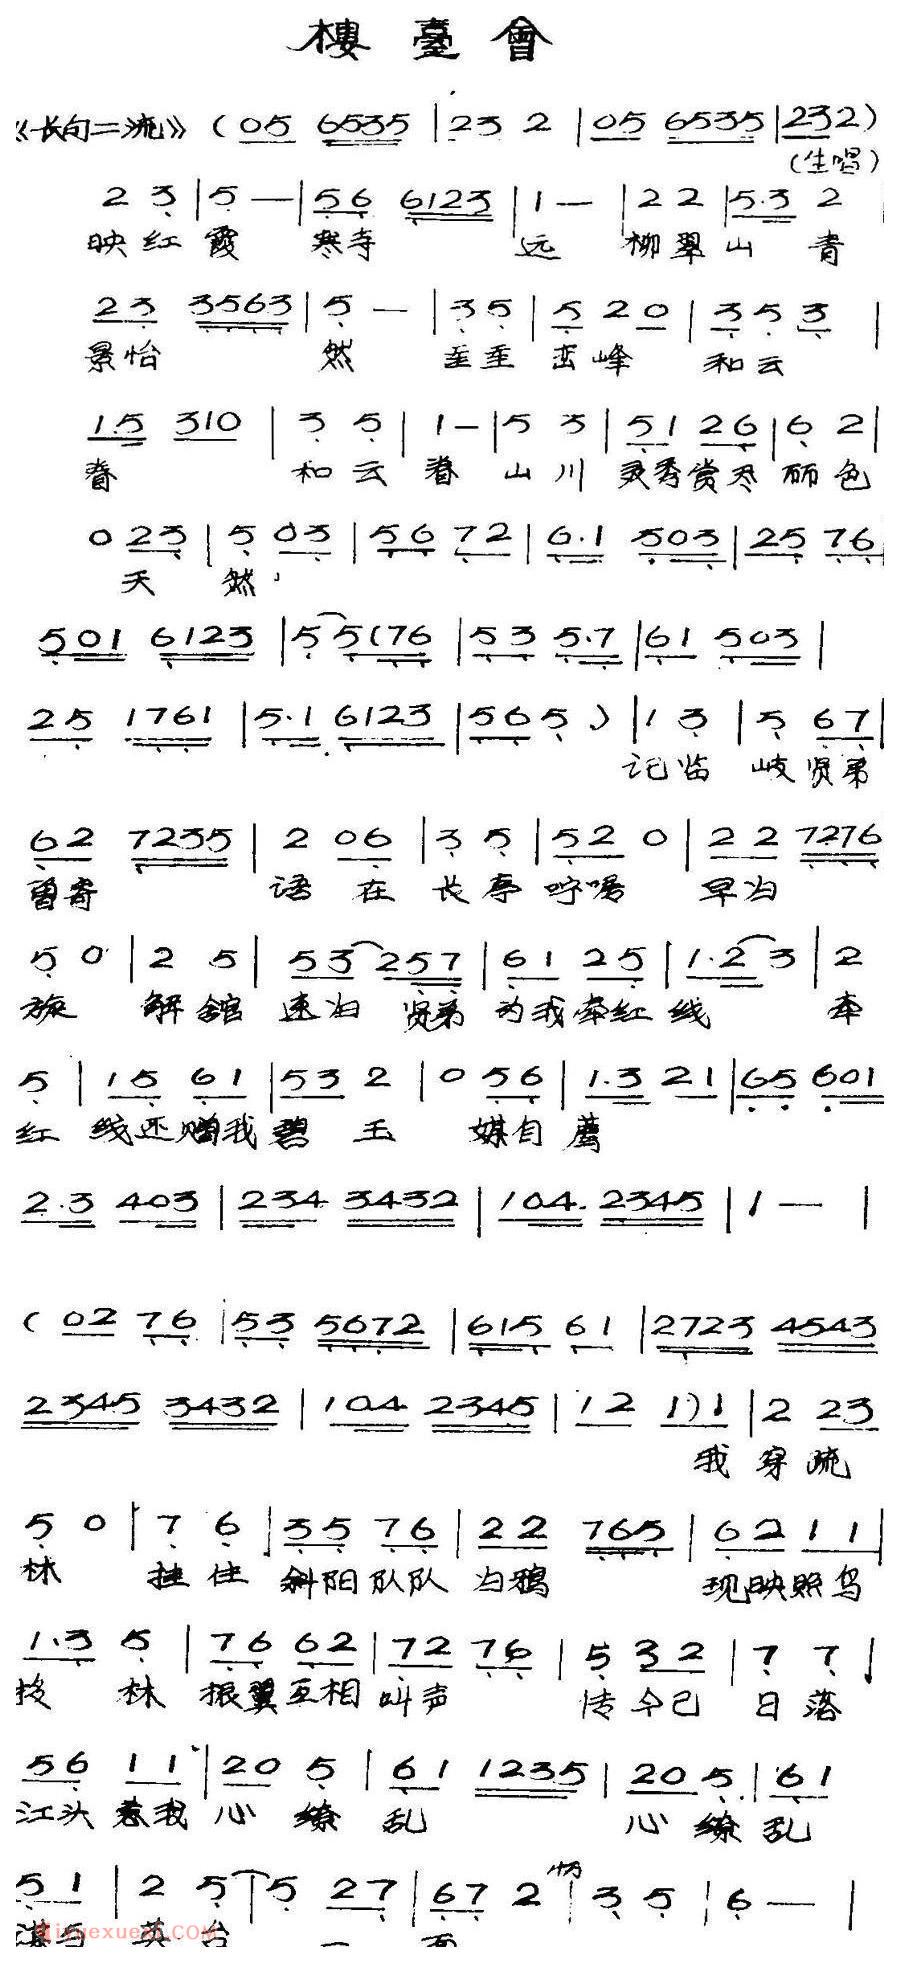 樓臺會
《长句二流》(05 6535 | 23 2 | 05 6535 | 232)
(生唱)
2 3 | 5 — | 56 6123 | 1 — | 22 | 5·3 2
映红霞 寒寺 远 柳翠山 青
23 3563 | 5 — | 35 | 5 20 | 353 |
景怡 然 峦峰 和云
1·5 310 | 3 5 | 1 — | 5 3 | 51 26 | 6 2 |
眷 和云眷 山川 灵秀赏尽 丽色
0 23 | 5 03 | 56 72 | 6·1 503 | 25 76
天 然
501 6123 | 5 5(76 | 53 5·7 | 61 503 |
25 1761 | 5·1 6123 | 565 5) | 1 3 | 5 67 |
记临 岐贤弟
62 7235 | 2 06 | 3 5 | 52 0 | 22 7276
曾寄 语 在 长亭 咛嘱 早归
5 0 | 2 5 | 53 257 | 61 25 | 1·2 3 | 2
旋 解馆 速归 贤弟 为我牵红 线 牵
5 | 15 61 | 53 2 | 0 56 | 1·3 21 | 65 601
红 线还赠我碧 玉 媒自 荐
2·3 403 | 234 3432 | 104 2345 | 1 — |
(02 76 | 53 5672 | 615 61 | 2723 4543
2345 3432 | 104 2345 | 12 1)1 | 2 23
我 穿疏
5 0 | 7 6 | 35 76 | 22 765 | 62 11 |
林 挂住 斜阳队队 归鸦 现映照鸟
1·3 5 | 76 62 | 72 76 | 5 32 | 7 7 |
投 林 振翼互相 叫声 传今已 日落
56 11 | 20 5 | 61 1235 | 20 5 | 61
江头惹我 心 缭 乱 心 缭乱
51 | 2 5 | 5 27 | 67 2 | 3 5 | 6 — |
英台 一 面